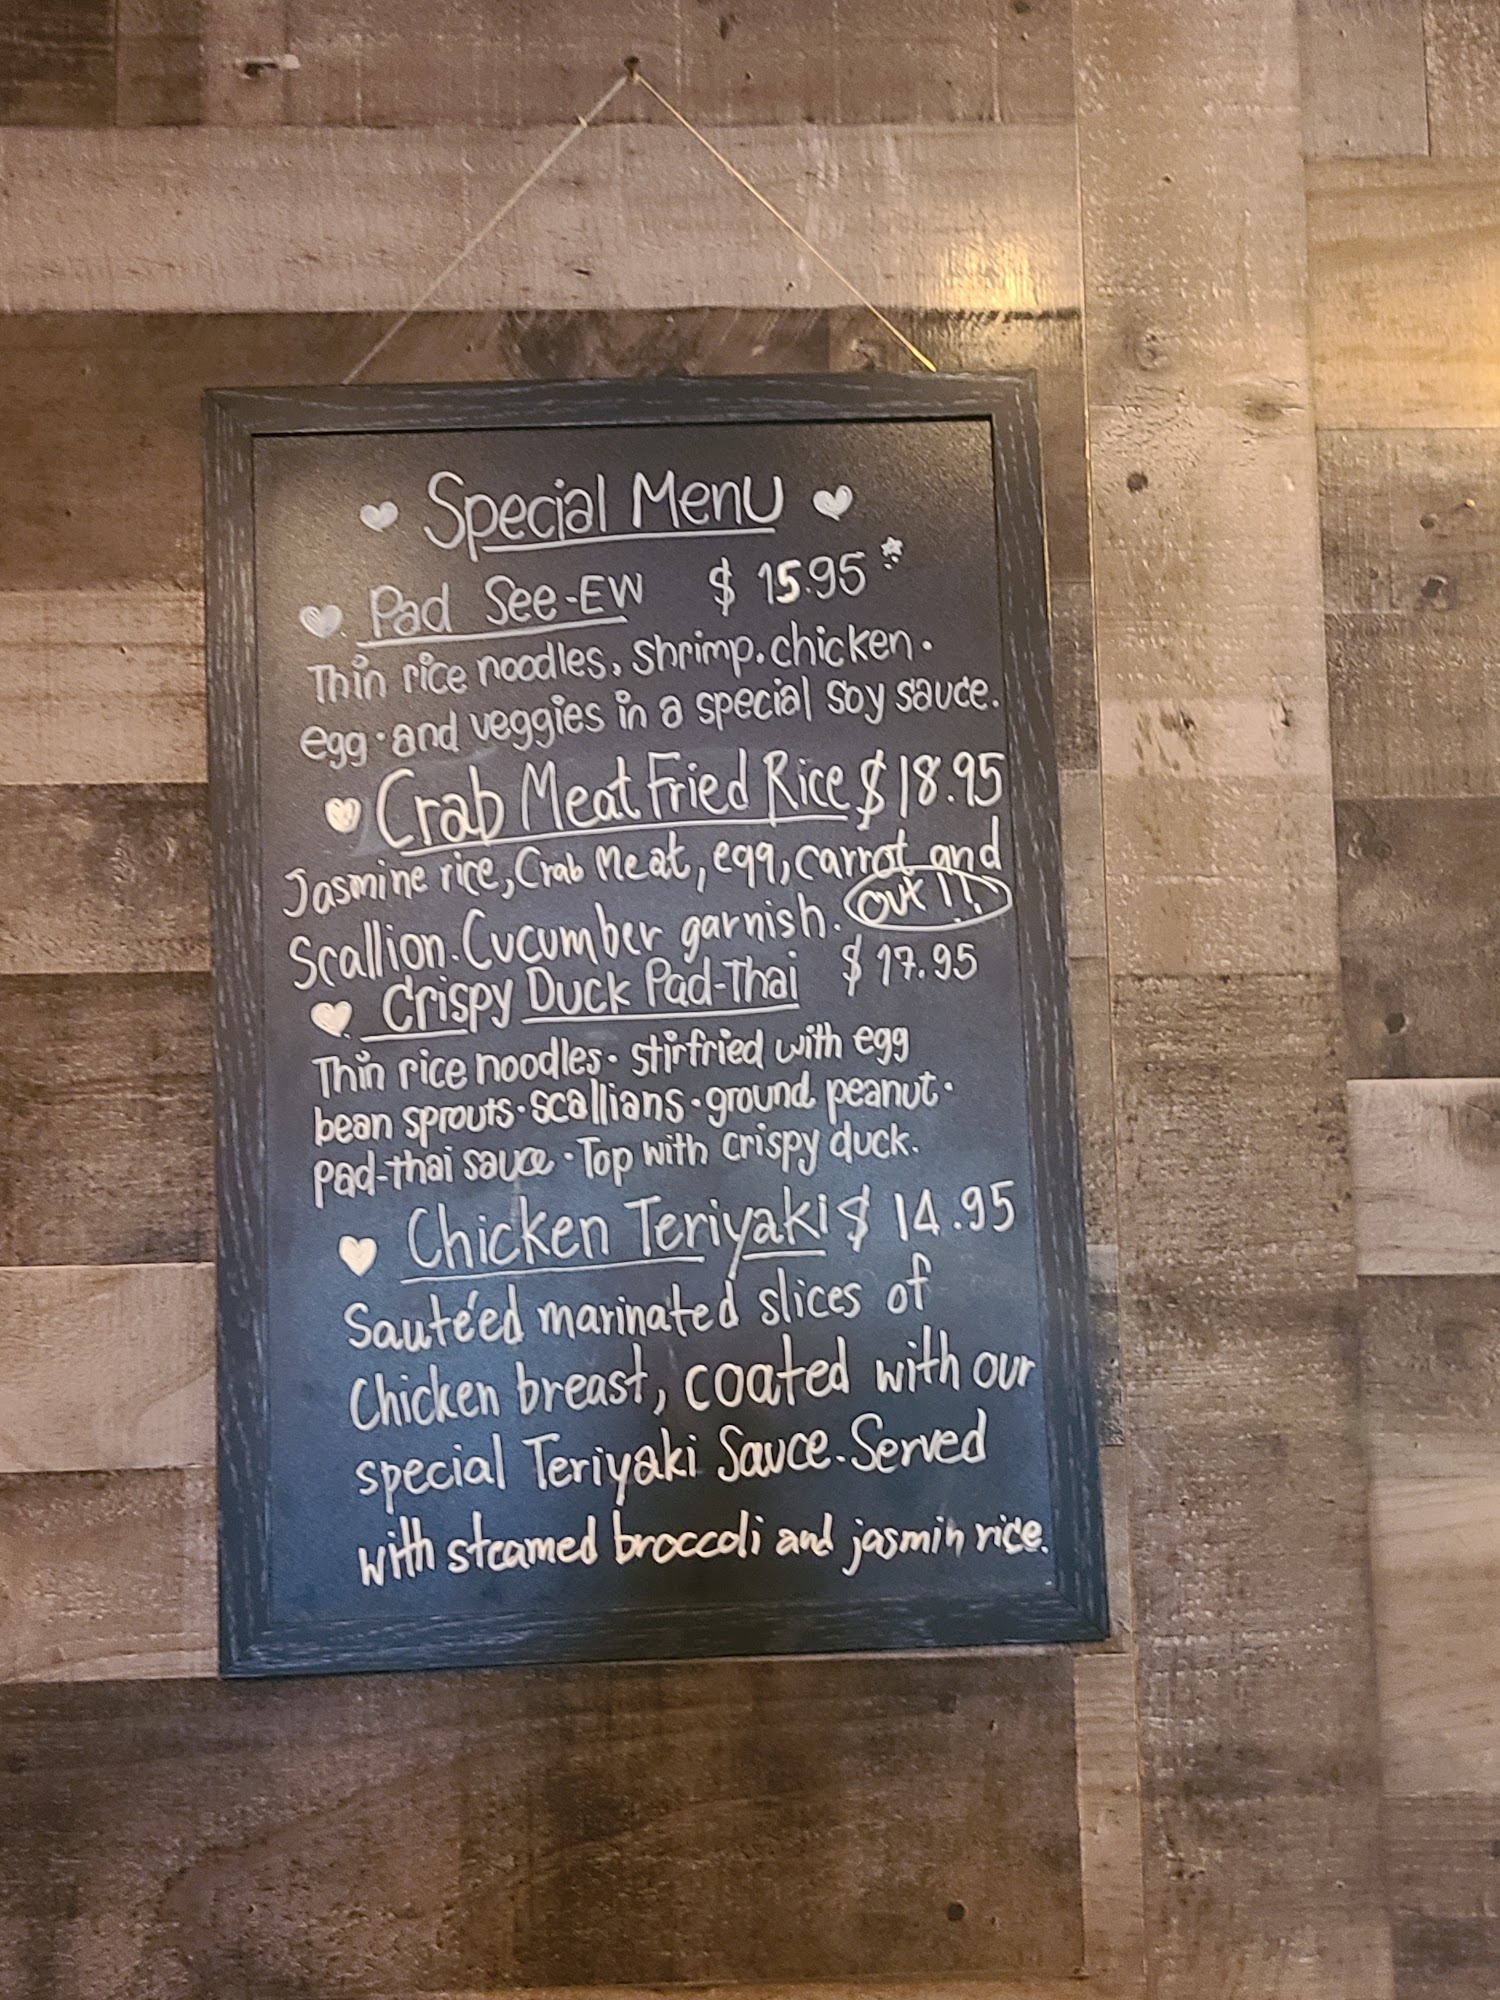 Special Menu
Pad See-EW $ 15.95
Thin rice noodles, shrimp. chicken.
egg. and veggies in a special soy sauce.
Crab Meat Fried Rice $18.95
Jasmine rice, Crab Meat, egg, carrot and
Scallion. Cucumber garnish. out !!
Crispy Duck Pad-Thai $ 17.95
Thin rice noodles. stirfried with egg
bean sprouts. scallians. ground peanut.
pad-thai sauce. Top with crispy duck.
Chicken Teriyaki $ 14.95
Sautéed marinated slices of
Chicken breast, coated with our
special Teriyaki Sauce. Served
with steamed broccoli and jasmin rice.